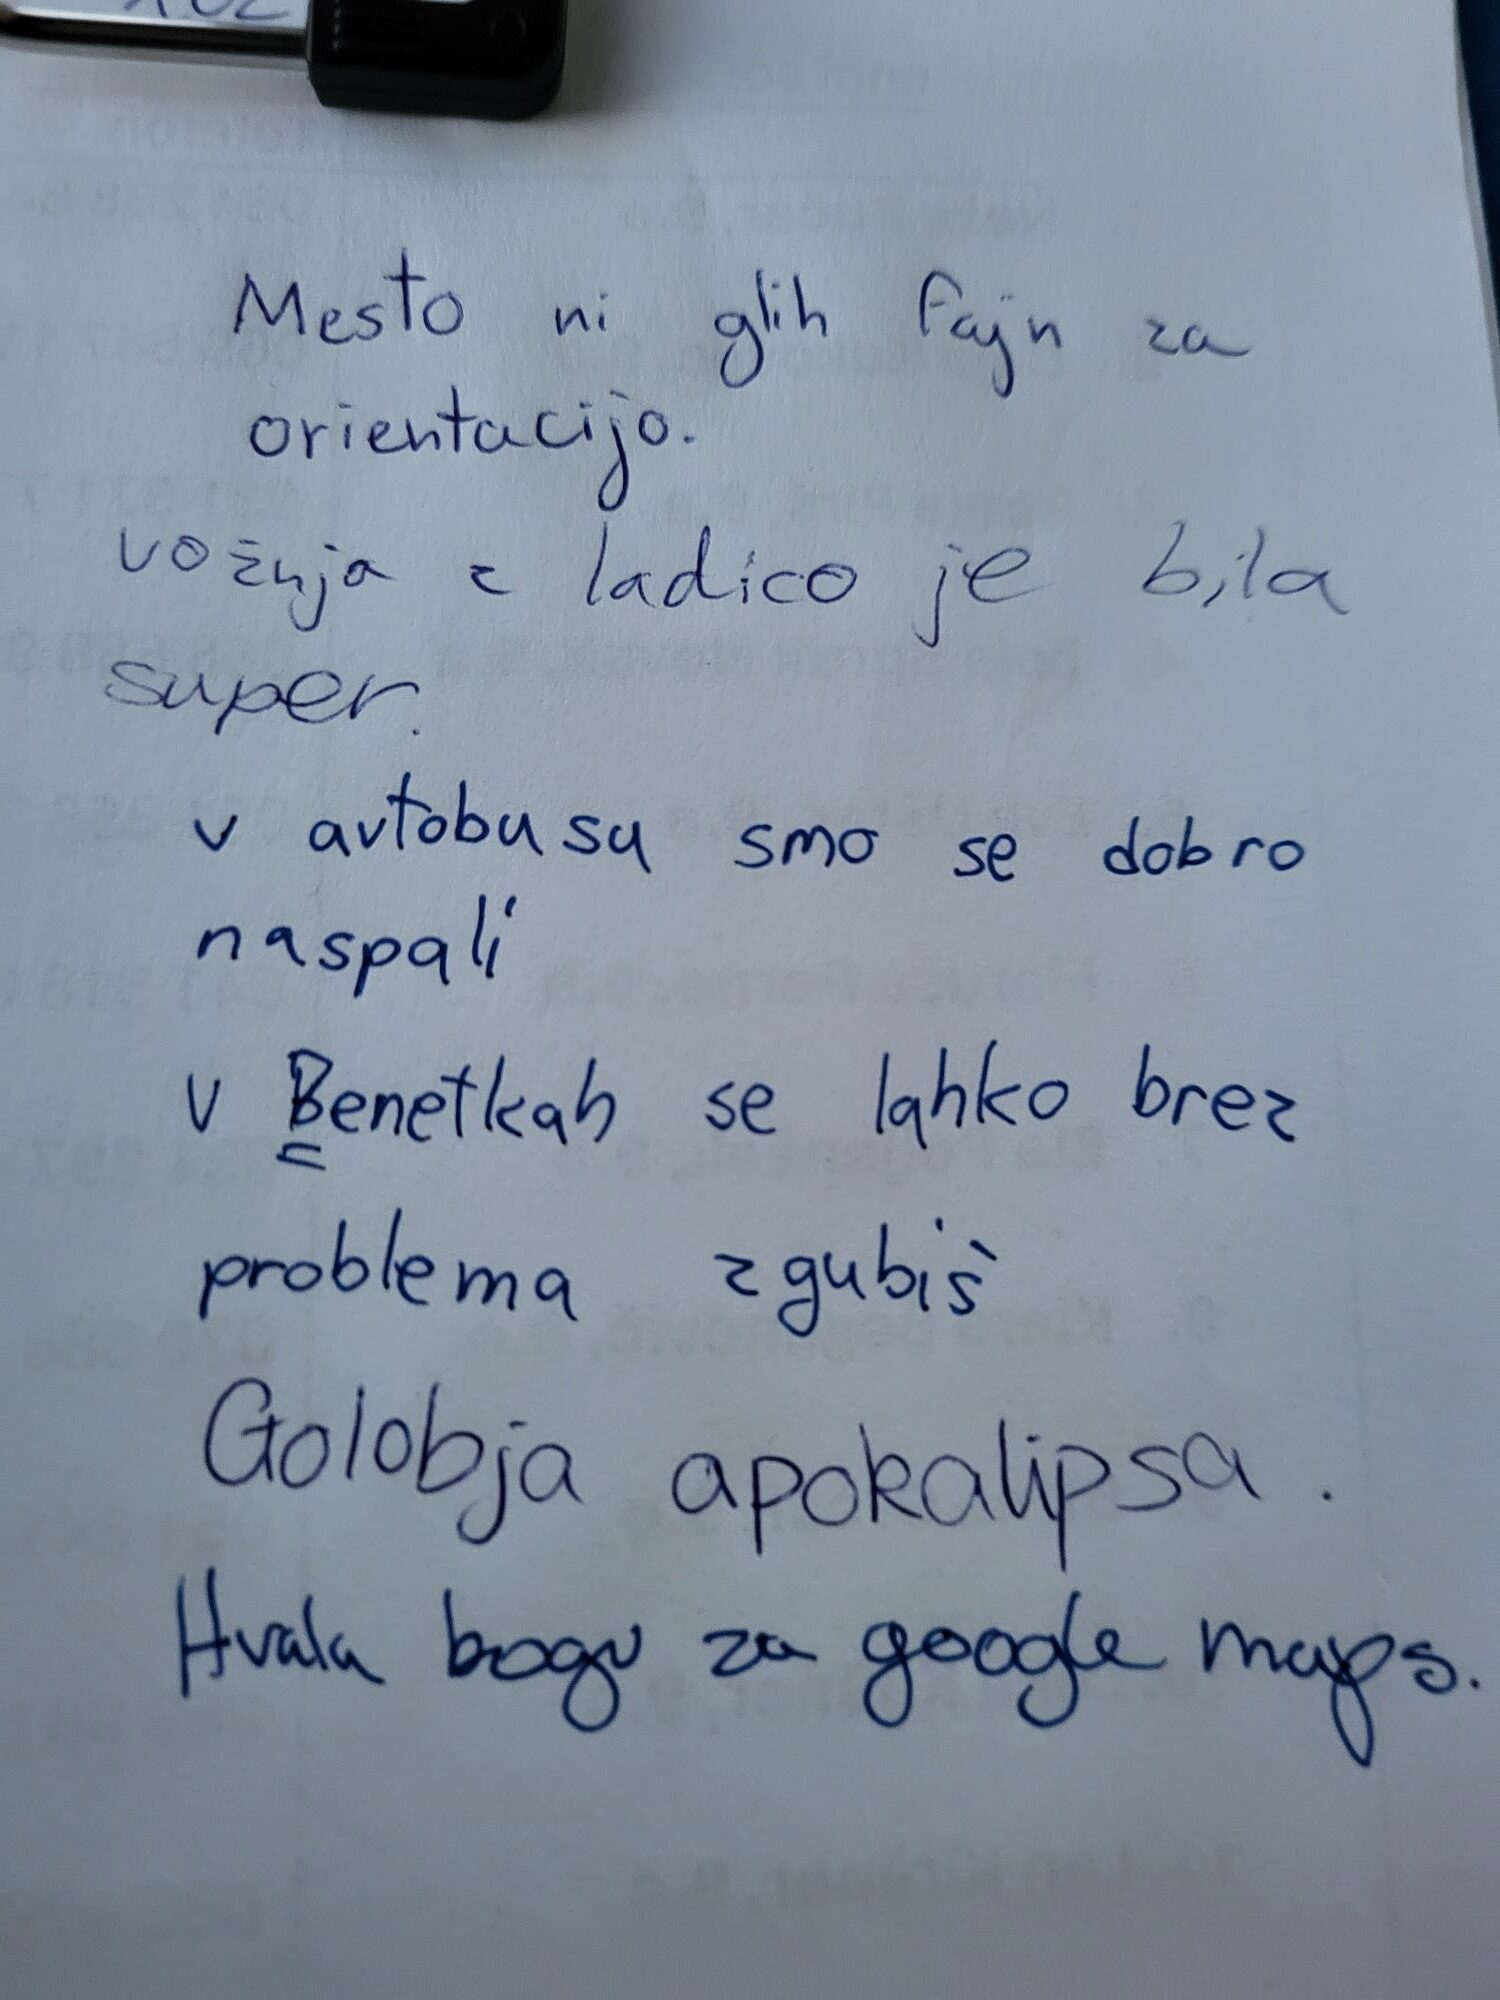 Mesto ni glih fajn za
orientacijo.
vožnja z ladico je bila
super.
v avtobusu smo se dobro
naspali
v Benetkah se lahko brez
problema zgubiš
Golobja apokalipsa.
Hvala bogu za google maps.